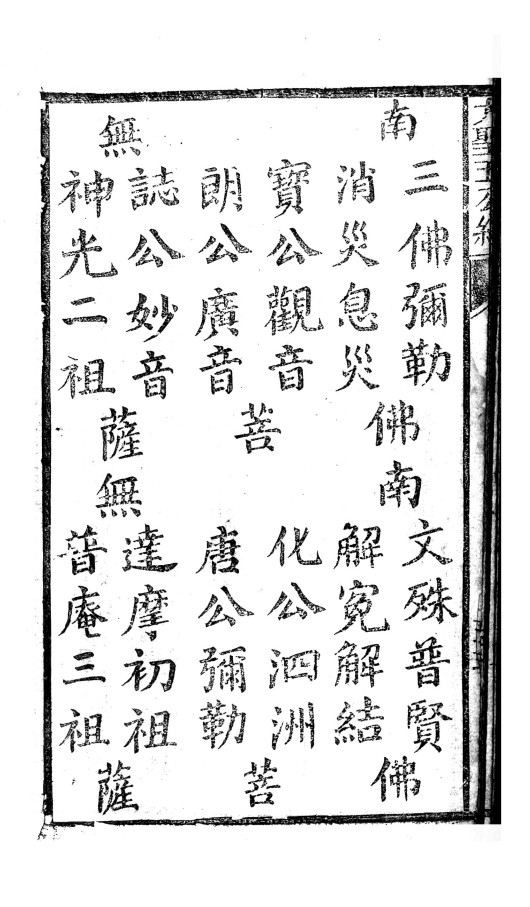 大聖五公經
南無
三佛彌勒
消災息災
寶公觀音
朗公廣音
誌公妙音
神光二祖
佛菩薩
南無
文殊普賢
解冤解結
化公泗洲
唐公彌勒
達摩初祖
普庵三祖
佛菩薩